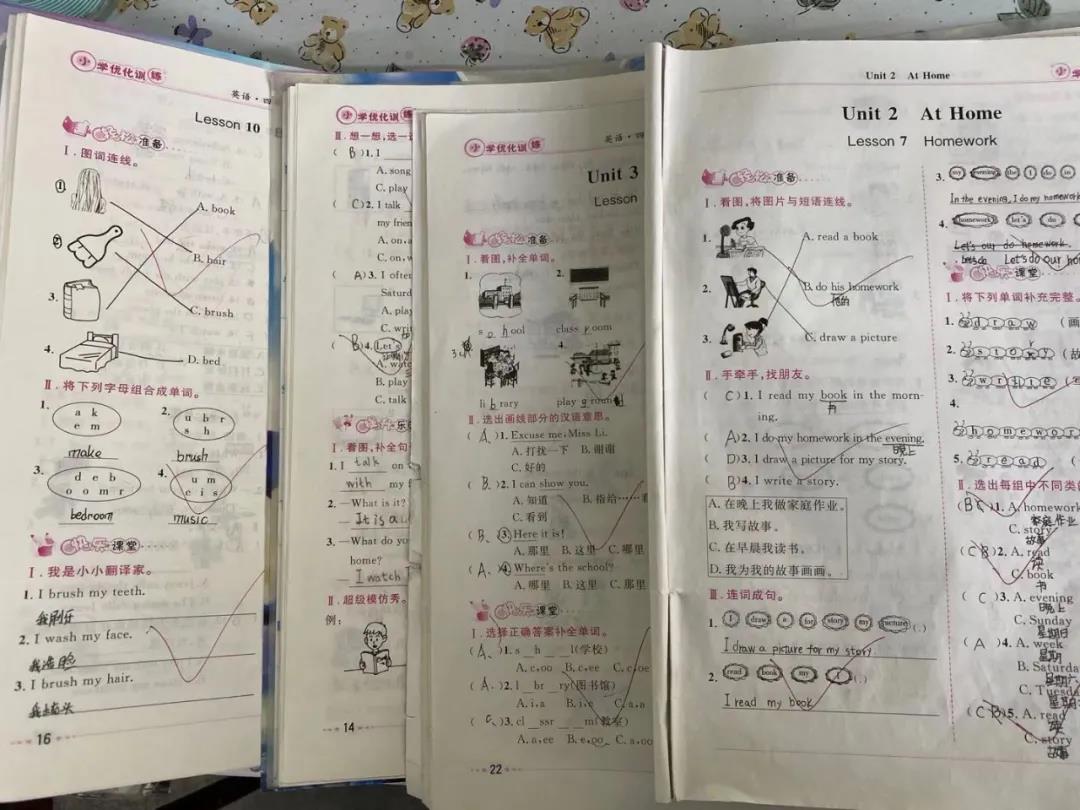 小学优化训练
英语·四
Lesson 10
轻松准备
Ⅰ.图词连线。
①
A. book
②
B. hair
3.
C. brush
4.
D. bed
Ⅱ.将下列字母组合成单词。
1. a k e m
2. u b r s h
make
brush
3. d e b o o m r
4. u m c i s
bedroom
music
快乐课堂
Ⅰ.我是小小翻译家。
1. I brush my teeth.
我刷牙
2. I wash my face.
我洗脸
3. I brush my hair.
我梳头
16
小学优化训练
Ⅱ.想一想,选一
( B )1. I
A. song
C. play
( C )2. I talk
my frien
A. on,a
C. on,w
( A )3. I often
Saturd
A. play
C. writ
( B )4. Let's
A. watc
B. play
C. talk
Ⅰ.看图,补全句
1. I talk on
with my f
2. —What is it?
—It is a
3. —What do yo
home?
—I watch
Ⅱ.超级模仿秀。
例:
14
小学优化训练
英语·四
Unit 3
Lesson
轻松准备
Ⅰ.看图,补全单词。
1.
2.
school
classroom
3.
4.
library
playground
Ⅱ.选出画线部分的汉语意思。
( A )1. Excuse me, Miss Li.
A. 打扰一下 B. 谢谢
C. 好的
( B )2. I can show you.
A. 知道 B. 指给……看
C. 看到
( B )3. Here it is!
A. 那里 B. 这里 C. 哪里
( A )4. Where's the school?
A. 哪里 B. 这里 C. 那
快乐课堂
Ⅰ.选择正确答案补全单词。
( A )1. s__h____l(学校)
A. c,oo B. c,ee C. c,oe
( A )2. l__br__ry(图书馆)
A. i,a B. i,e C. a,a
( C )3. cl__ssr____m(教室)
A. a,ee B. e,oo C. a,oo
22
Unit 2 At Home
小学
Unit 2 At Home
Lesson 7 Homework
轻松准备
Ⅰ.看图,将图片与短语连线。
1.
A. read a book
2.
B. do his homework
他的
3.
C. draw a picture
Ⅱ.手牵手,找朋友。
( C )1. I read my book in the morn-
书
ing.
( A )2. I do my homework in the evening.
晚上
( D )3. I draw a picture for my story.
( B )4. I write a story.
A. 在晚上我做家庭作业。
B. 我写故事。
C. 在早晨我读书。
D. 我为我的故事画画。
Ⅲ.连词成句。
1. I draw a for story my picture (.)
I draw a picture for my story.
2. read book my I (.)
I read my book
3. my evening the I do in
In the evening, I do my homework
4. homework let's do
Let's our do homework.
Let's do our ho
快乐课堂
Ⅰ.将下列单词补充完整。
1. draw (画
2. story (故
3. write
4.
homework
5. read
Ⅱ.选出每组中不同类的
( B )1. A. homework
家庭作业
C. story
故事
( C B )2. A. read
读
C. book
书
( C )3. A. evening
晚上
C. Sunday
星期日
( A )4. A. week
星期
B. Saturda
星期六
C. Tuesda
星期
( C B )5. A. read
读
C. story
故事